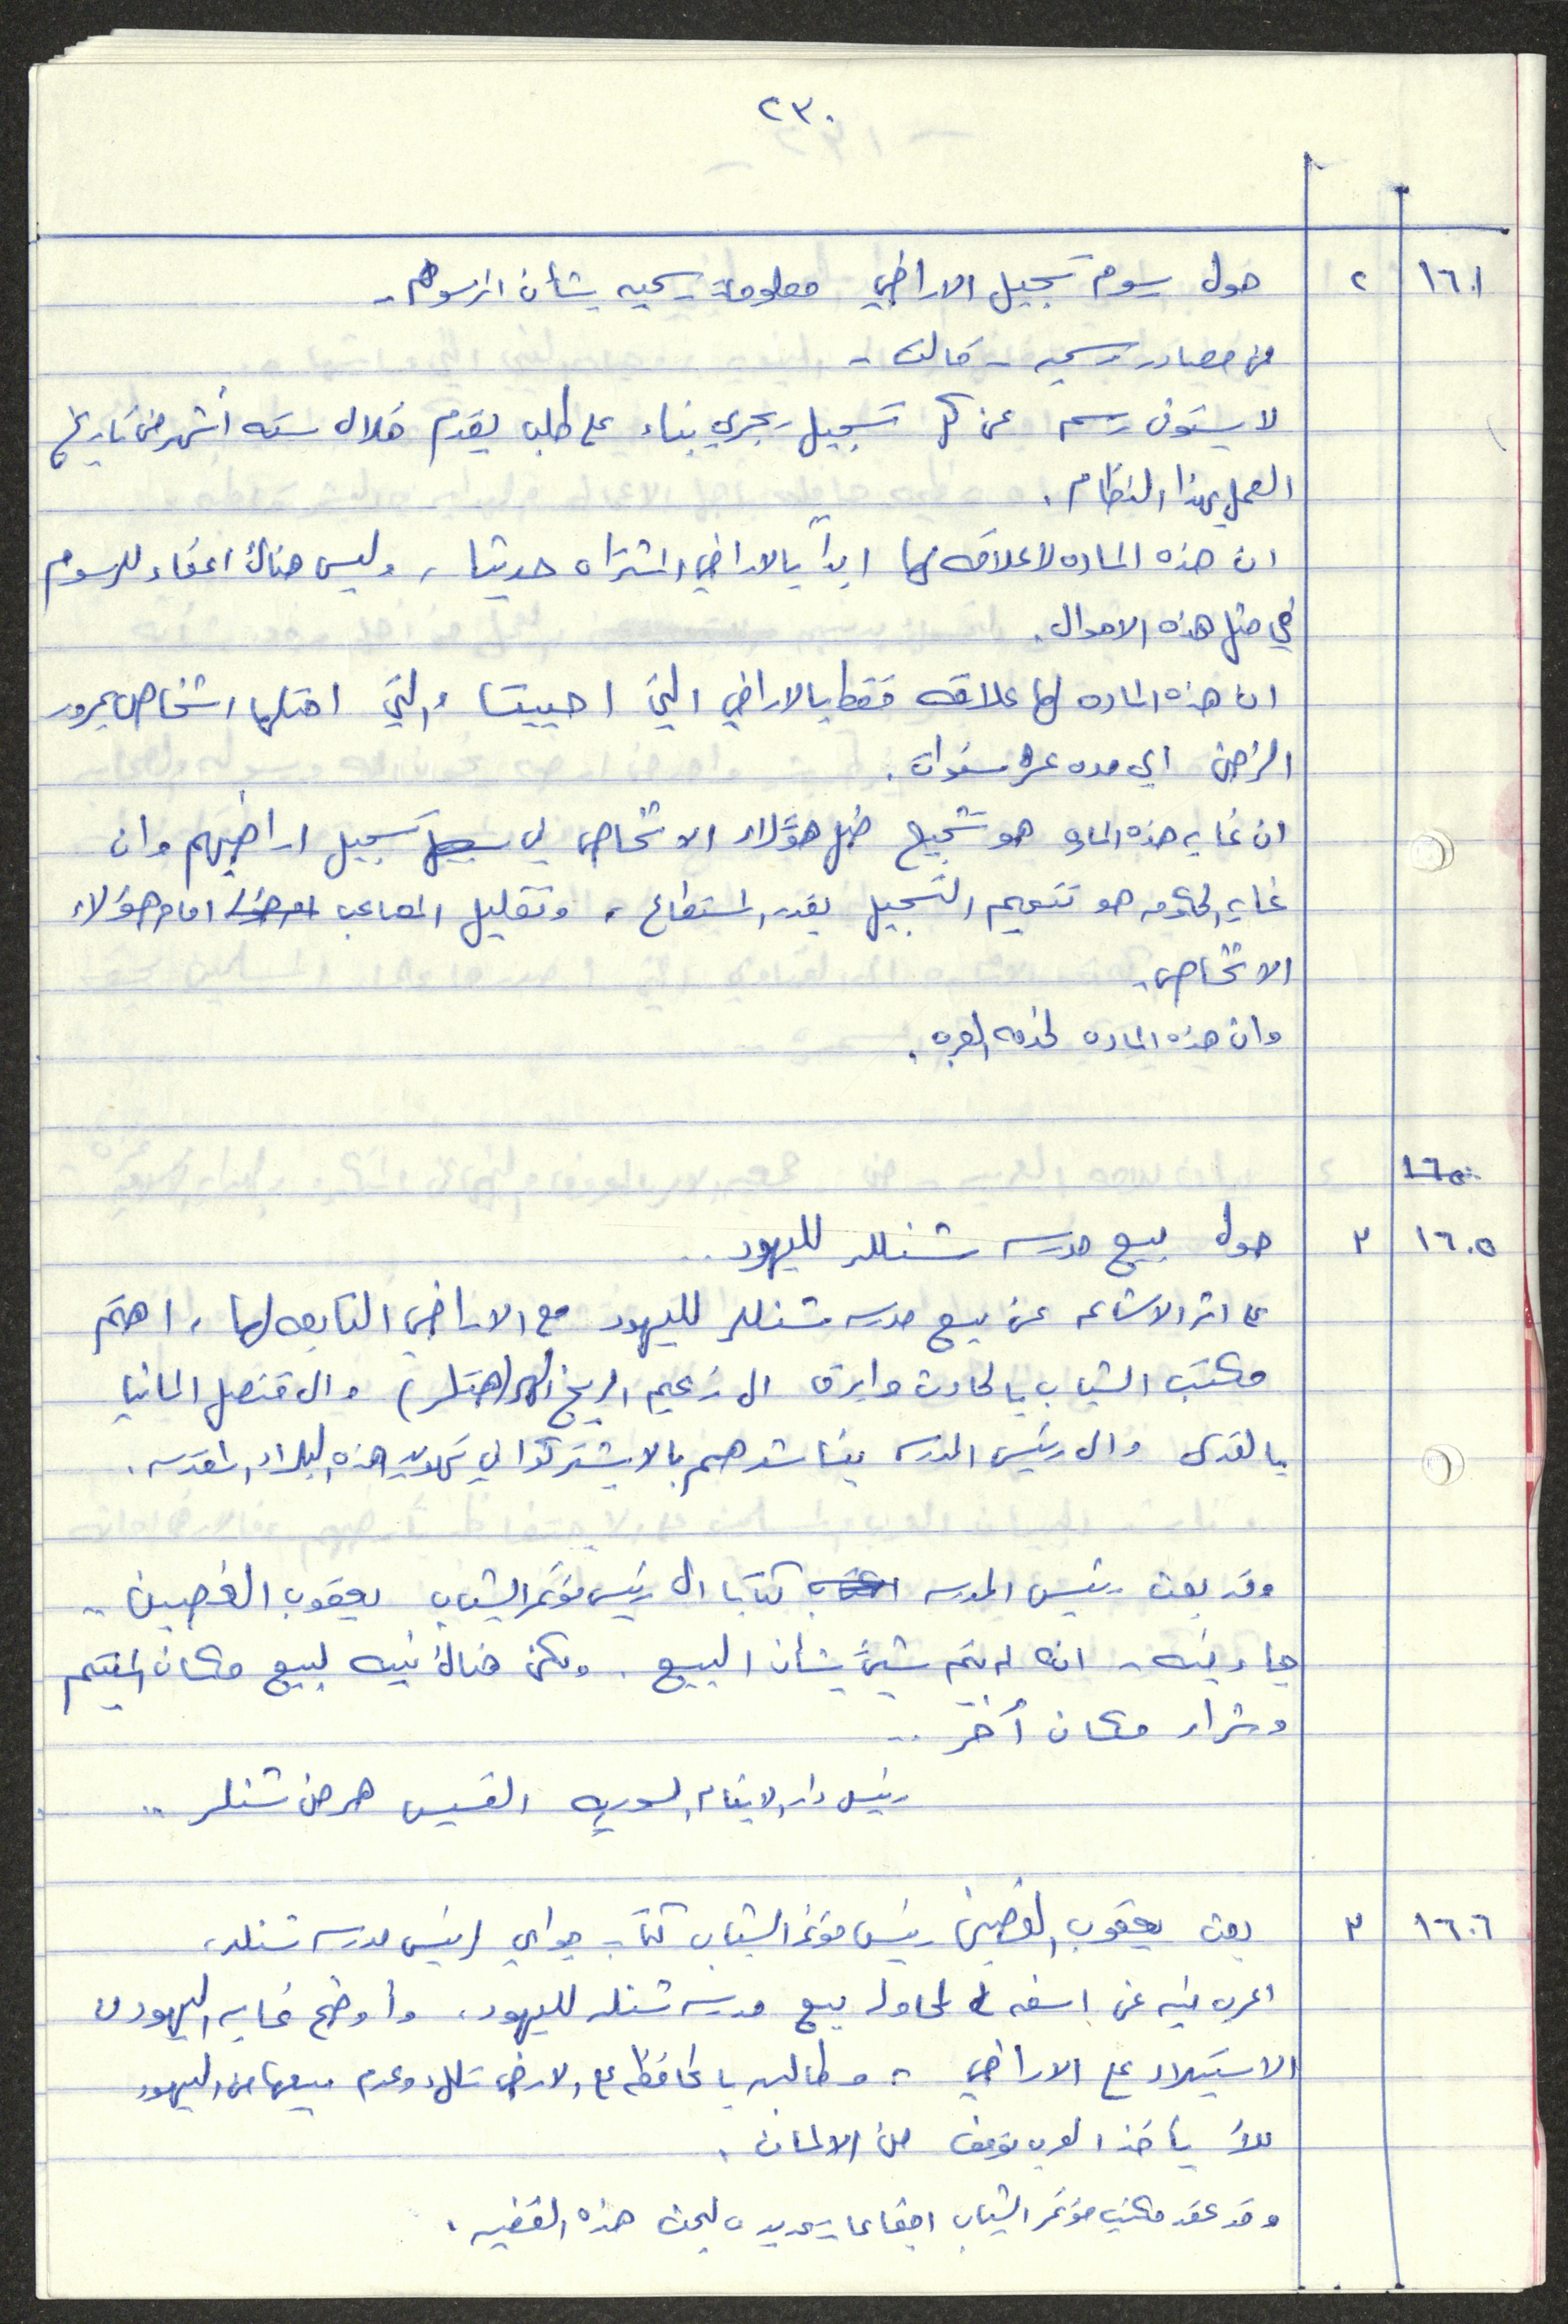 ٢٣٠
١٦٠١ ٢ حول رسوم تسجيل الاراضي معلومات رسميه بشأن الرسوم -
من مصادر رسميه - قالت -
لا يستوفى رسم عن كل تسجيل يجري بناء على طلب يقدم خلال سته أشهر من تاريخ
العمل بهذا النظام .
ان هذه الماده لا علاقه لها ابداً بالاراضي المشتراه حديثا ، وليس هناك اعفاء للرسوم
في مثل هذه الاحوال .
ان هذه الماده لها علاقه فقط بالاراضي التي احييت او التي احتلها اشخاص بمرور
الزمن اي مده عشر سنوات .
ان غايه هذه الماده هو تشجيع مثل هؤلاء الاشخاص لي تسجيل اراضيهم وان
غايه الحكومه هو تتميم التسجيل بقدر المستطاع ، وتقليل المصاعب امام هؤلاء
الاشخاص -
وان هذه الماده لخدمه العرب .
١٦٠٥
١٦٠٥ ٣ حول بيع مدرسه شنللر لليهود ..
على اثر الاشاعه عن بيع مدرسه شنللر لليهود مع الاراضي التابعه لها ، اهتم
مكتب الشباب بالحادث وابرق الى زعيم الريخ الهر (هتلر) والى قنصل المانيا
بالقدس والى رئيس المدرسه يناشدهم بالا يشتركوا في تهويد هذه البلاد المقدسه .
وقد بعث رئيس المدرسه كتابا الى رئيس مؤتمر الشباب يعقوب الغصين ..
جاء فيه - انه لم يتم شيئ بشأن البيع . ولكن هناك نيه لبيع مكان الميتم
وشراء مكان أخر ..
رئيس دار الايتام السوريه القسيس هرمن شنلر ..
١٦٠٦ ٣ بعث يعقوب الغصين رئيس مؤتمر الشباب كتاب جوابي لرئيس مدرسه شنلر ،
اعرب فيه عن اسفه لمحاوله بيع مدرسه شنلر لليهود ، وأوضح غايه اليهود من
الاستيلاء على الاراضي ، وطالبه بالمحافظه على الارض تلك وعدم بيعها من اليهود
لئلا يأخذ العرب موقف من الالمان .
وقد عقد مكتب مؤتمر الشباب اجتماعا لبحث هذه القضيه .